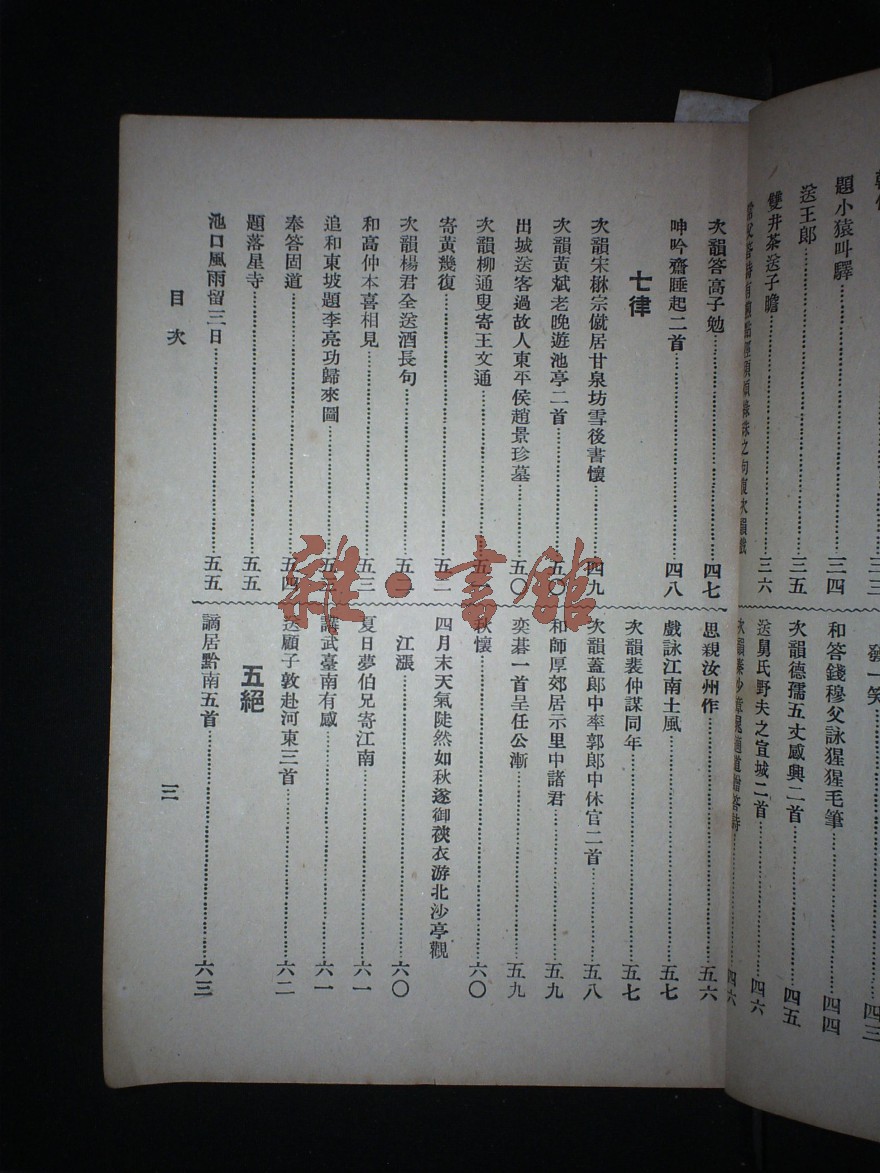 題小猿叫驛……三四
送王郎……三五
雙井茶送子瞻……三六
發一笑……四三
和答錢穆父詠猩猩毛筆……四四
次韻德孺五丈感興二首……四五
送舅氏野夫之宣城二首……四六
次韻答高子勉……四七
呻吟齋睡起二首……四八
七律
次韻宋楙宗僦居甘泉坊雪後書懷……四九
次韻黃斌老晚遊池亭二首……五〇
出城送客過故人東平侯趙景珍墓……五〇
次韻柳通叟寄王文通……五
寄黃幾復……五二
次韻楊君全送酒長句……五
和高仲本喜相見……五三
追和東坡題李亮功歸來圖……五
奉答固道……五四
題落星寺……五五
池口風雨留三日……五五
思親汝州作……五六
戲詠江南土風……五七
次韻裴仲謀同年……五七
次韻蓋郎中率郭郎中休官二首……五八
和師厚郊居示里中諸君……五九
奕碁一首呈任公漸……五九
秋懷……六〇
四月末天氣陡然如秋遂御裌衣游北沙亭觀
江漲……六〇
夏日夢伯兄寄江南……六一
講武臺南有感……六一
送顧子敦赴河東三首……六二
五絕
謫居黔南五首……六三
目次
三
雜·書館